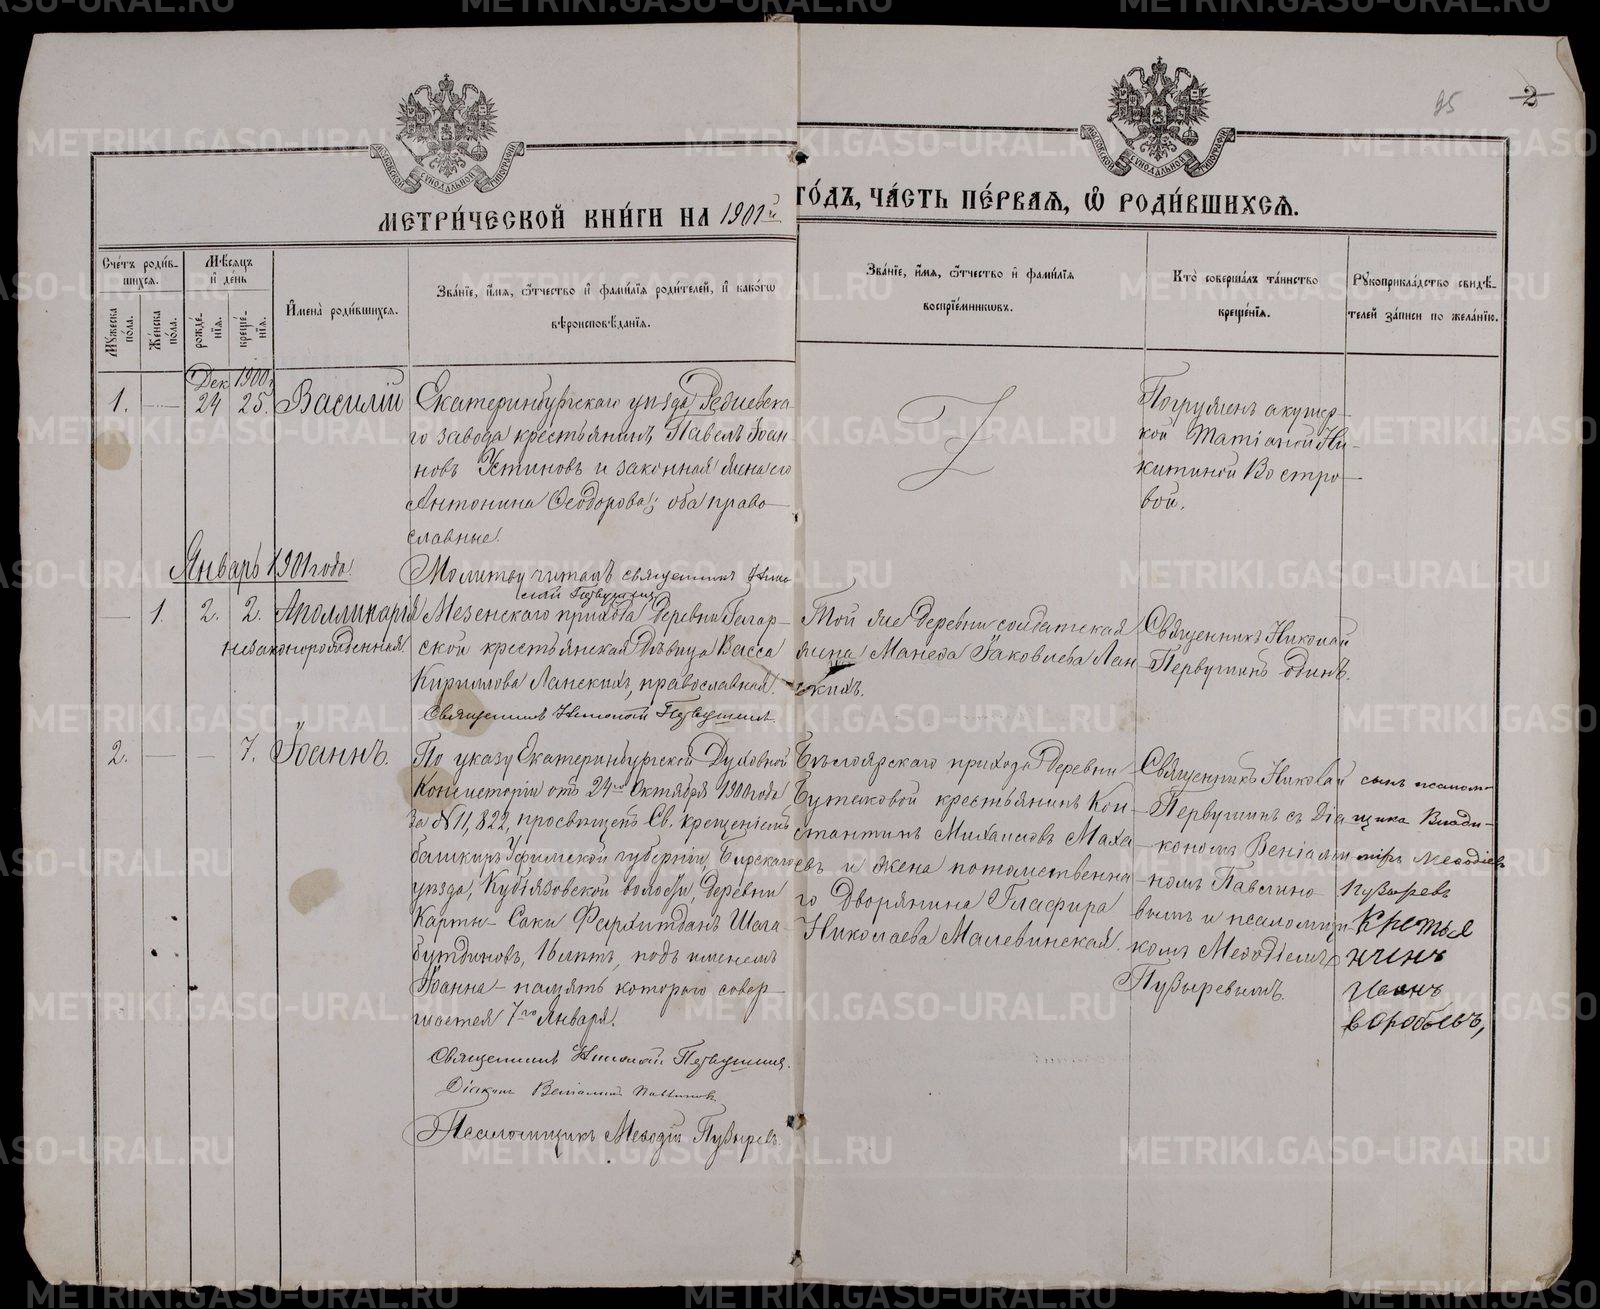 95 2
МОСКОВСКОЙ СѴНОДАЛЬНОЙ ТИПОГРАФІИ
МОСКОВСКОЙ СѴНОДАЛЬНОЙ ТИПОГРАФІИ
МЕТРИ́ЧЕСКОЙ КНИ́ГИ НА 1901й ГО́ДЪ, ЧА́СТЬ ПЕ́РВАЯ, Ѡ РОДИ́ВШИХСЯ.
Сче́тъ роди́в-
шихся.
Му́жеска по́ла.
Же́нска по́ла.
Мѣ́сяцъ
и де́нь
рожде́-
нія.
креще́-
нія.
Имена̀ роди́вшихся.
Зва́ніе, и́мя, о́тчество и фами́лія роди́телей, и како́гѡ
вѣроисповѣ́данія.
Зва́ніе, и́мя, о́тчество и фами́лія
воспріе́мниковъ.
Кто̀ соверша́лъ та́инство
креще́нія.
Рукоприкла́дство свидѣ́-
телей за́писи по жела́нію.
Дек. 1900 г.
1. — 24 25. Василій
Екатеринбургскаго уѣзда, Ревдинска-
го завода крестьянинъ Павелъ Іоан-
новъ Устиновъ и законная жена его
Антонина Ѳеодорова; оба право-
славные.
Молитву читалъ священникъ Нико-
лай Первушинъ
Погружен акушер-
кой Татіаной Ни-
китиной Востро-
вой.
Январь 1901 года.
— 1. 2. 2. Аполлинарія
незаконорожденная.
Мезенскаго прихода деревни Гагар-
ской крестьянская дѣвица Васса
Кириллова Ланскихъ, православная.
Священникъ Николай Первушинъ.
Той же деревни солдатская
жена Манеѳа Іаковлева Лан-
скихъ.
Священникъ Николай
Первушинъ одинъ.
2. — — 7. Іоаннъ.
По указу Екатеринбургской Духовной
Консисторіи отъ 24го Октября 1900 года
за № 11,822, просвѣщенъ Св. крещеніемъ
башкиръ Уфимской губерніи, Бирскаго
уѣзда, Кубіязовской волости, деревни
Карты-Саки Фархитданъ Шага-
бутдиновъ, 16 лѣтъ, подъ именемъ
Іоанна — память котораго совер-
шается 7го Января.
Священникъ Николай Первушинъ.
Діаконъ Веніаминъ Павлиновъ
Псаломщикъ Меѳодій Пузыревъ.
Бѣлоярскаго прихода деревни
крестьянинъ Кон-
стантинъ Михаиловъ Маха-
евъ и жена потомственна-
го Дворянина Глафира
Николаева Малевинская.
Священникъ Николай
Первушинъ съ Діа-
кономъ Веніами-
номъ Павлино-
вымъ и псаломщи-
комъ Меѳодіемъ
Пузыревымъ.
сынъ псалом-
щика Влади-
міръ Меѳодіевъ
Пузыревъ
Крестья
нинъ
Иванъ
Воробьевъ,
METRIKI.GASO-URAL.RU